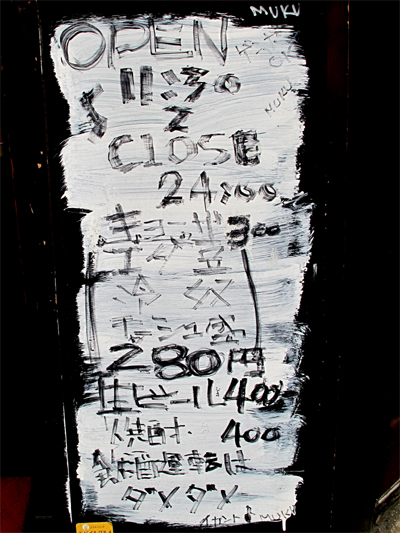 MUKU
OPEN
11:30
〜
CLOSE
24:00
ギョーザ 300
エダ豆
冷奴
チャーシュー盛
280円
生ビール 400
焼酎 400
飲酒運転は
ダメダメ
MUKU